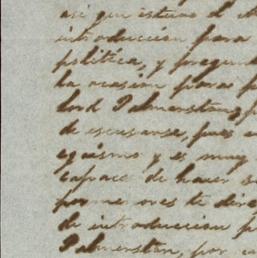 asi que estuvo el
introduccion para
politica, y pregun
ha ocasion para p
lord Palmerston, p
de escusarse, pues e
egoismo y es muy
capace de hacer s
pormenores te dire
de introduccion p
Palmerston, por c